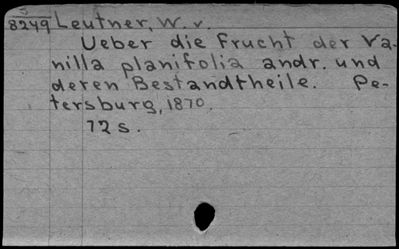 8249 Leutner, W. v.
Ueber die Frucht der Va-
nilla planifolia andr. und
deren Bestandtheile. Pe-
tersburg, 1870.
72 s.